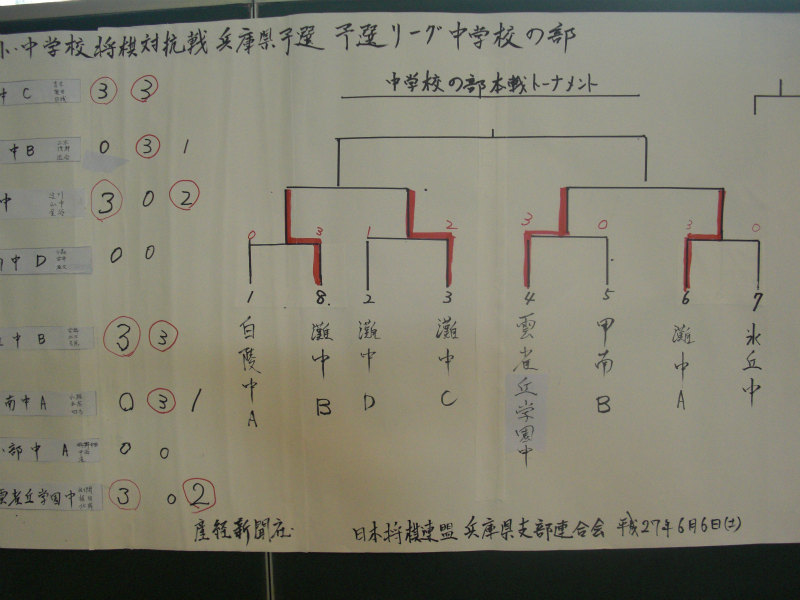 小・中学校将棋対抗戦兵庫県予選 予選リーグ中学校の部
中学校の部本戦トーナメント
中 C 3 3
中 B 0 3 1
中 3 0 2
中 D 0 0
中 B 3 3
南中 A 0 3 1
部中 A 0 0
雲雀丘学園中 3 0 2
0 3 1 2 3 0 3 0
1 8 2 3 4 5 6 7
白陵中A
灘中B
灘中D
灘中C
雲雀丘学園中
甲南B
灘中A
氷丘中
産経新聞社 日本将棋連盟 兵庫県支部連合会 平成27年6月6日(土)